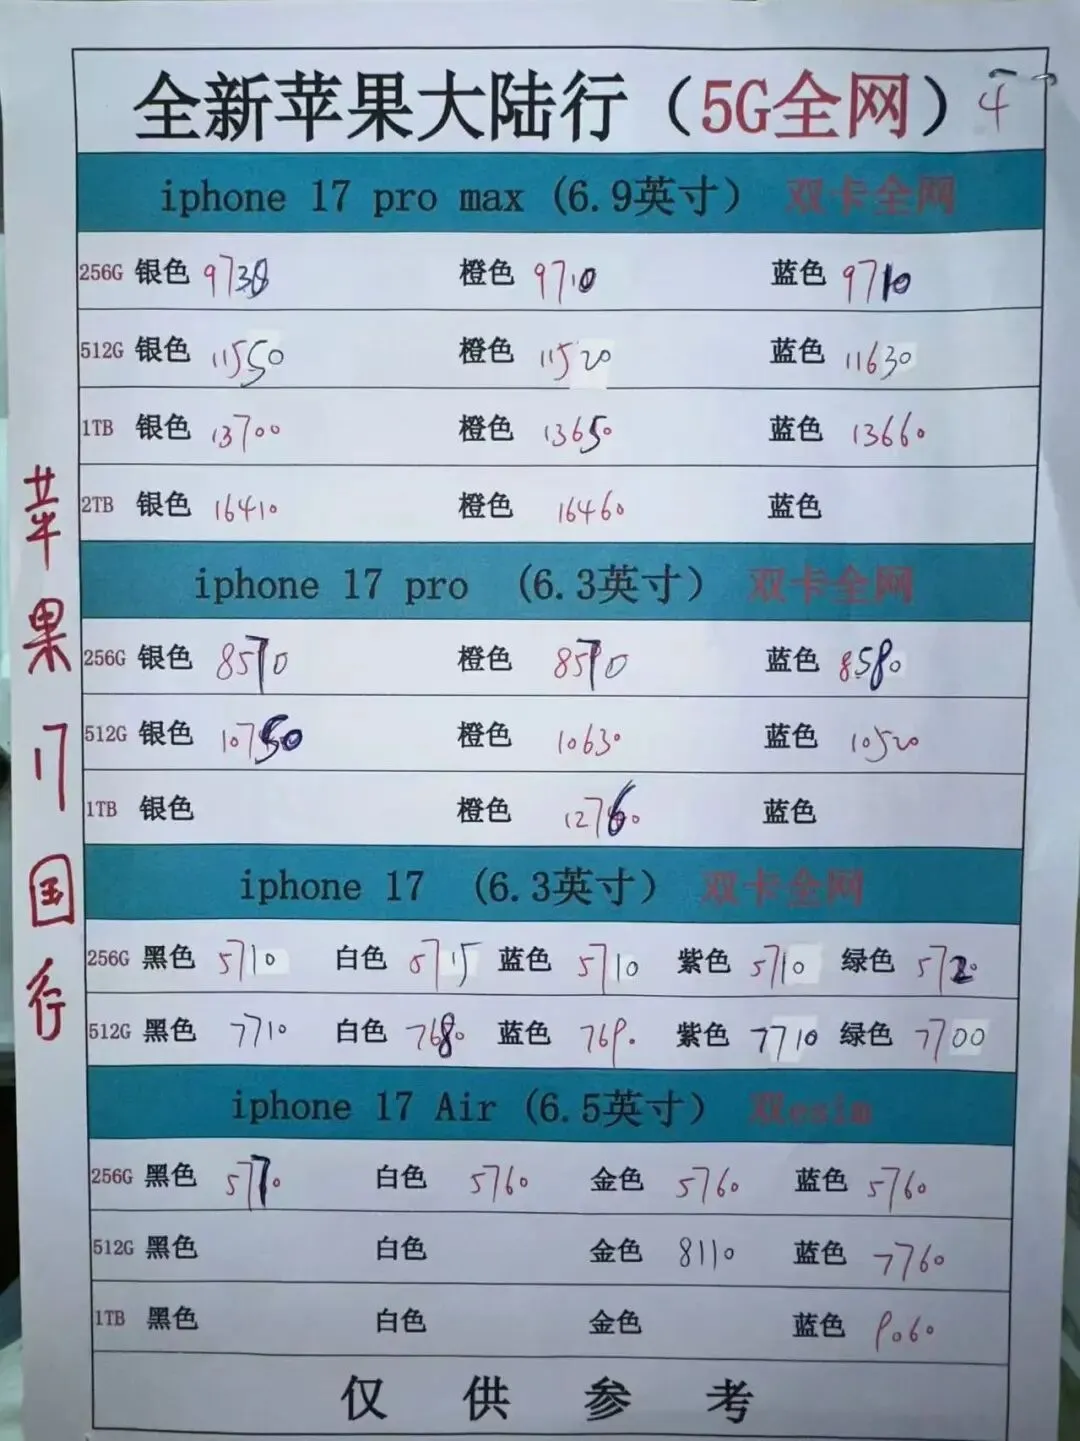 全新苹果大陆行（5G全网） 4
iphone 17 pro max (6.9英寸） 双卡全网
256G 银色 9730 橙色 9710 蓝色 9710
512G 银色 11550 橙色 11520 蓝色 11630
1TB 银色 13700 橙色 13650 蓝色 13660
2TB 银色 16410 橙色 16460 蓝色
iphone 17 pro (6.3英寸） 双卡全网
256G 银色 8570 橙色 8570 蓝色 8580
512G 银色 10750 橙色 10630 蓝色 10520
1TB 银色 橙色 12760 蓝色
iphone 17 (6.3英寸） 双卡全网
256G 黑色 5710 白色 5715 蓝色 5710 紫色 5710 绿色 5720
512G 黑色 7710 白色 7680 蓝色 紫色 7710 绿色 7700
iphone 17 Air (6.5英寸） 双esim
256G 黑色 5770 白色 5760 金色 5760 蓝色 5760
512G 黑色 白色 金色 8110 蓝色 7760
1TB 黑色 白色 金色 蓝色
仅供参考
苹果17国行